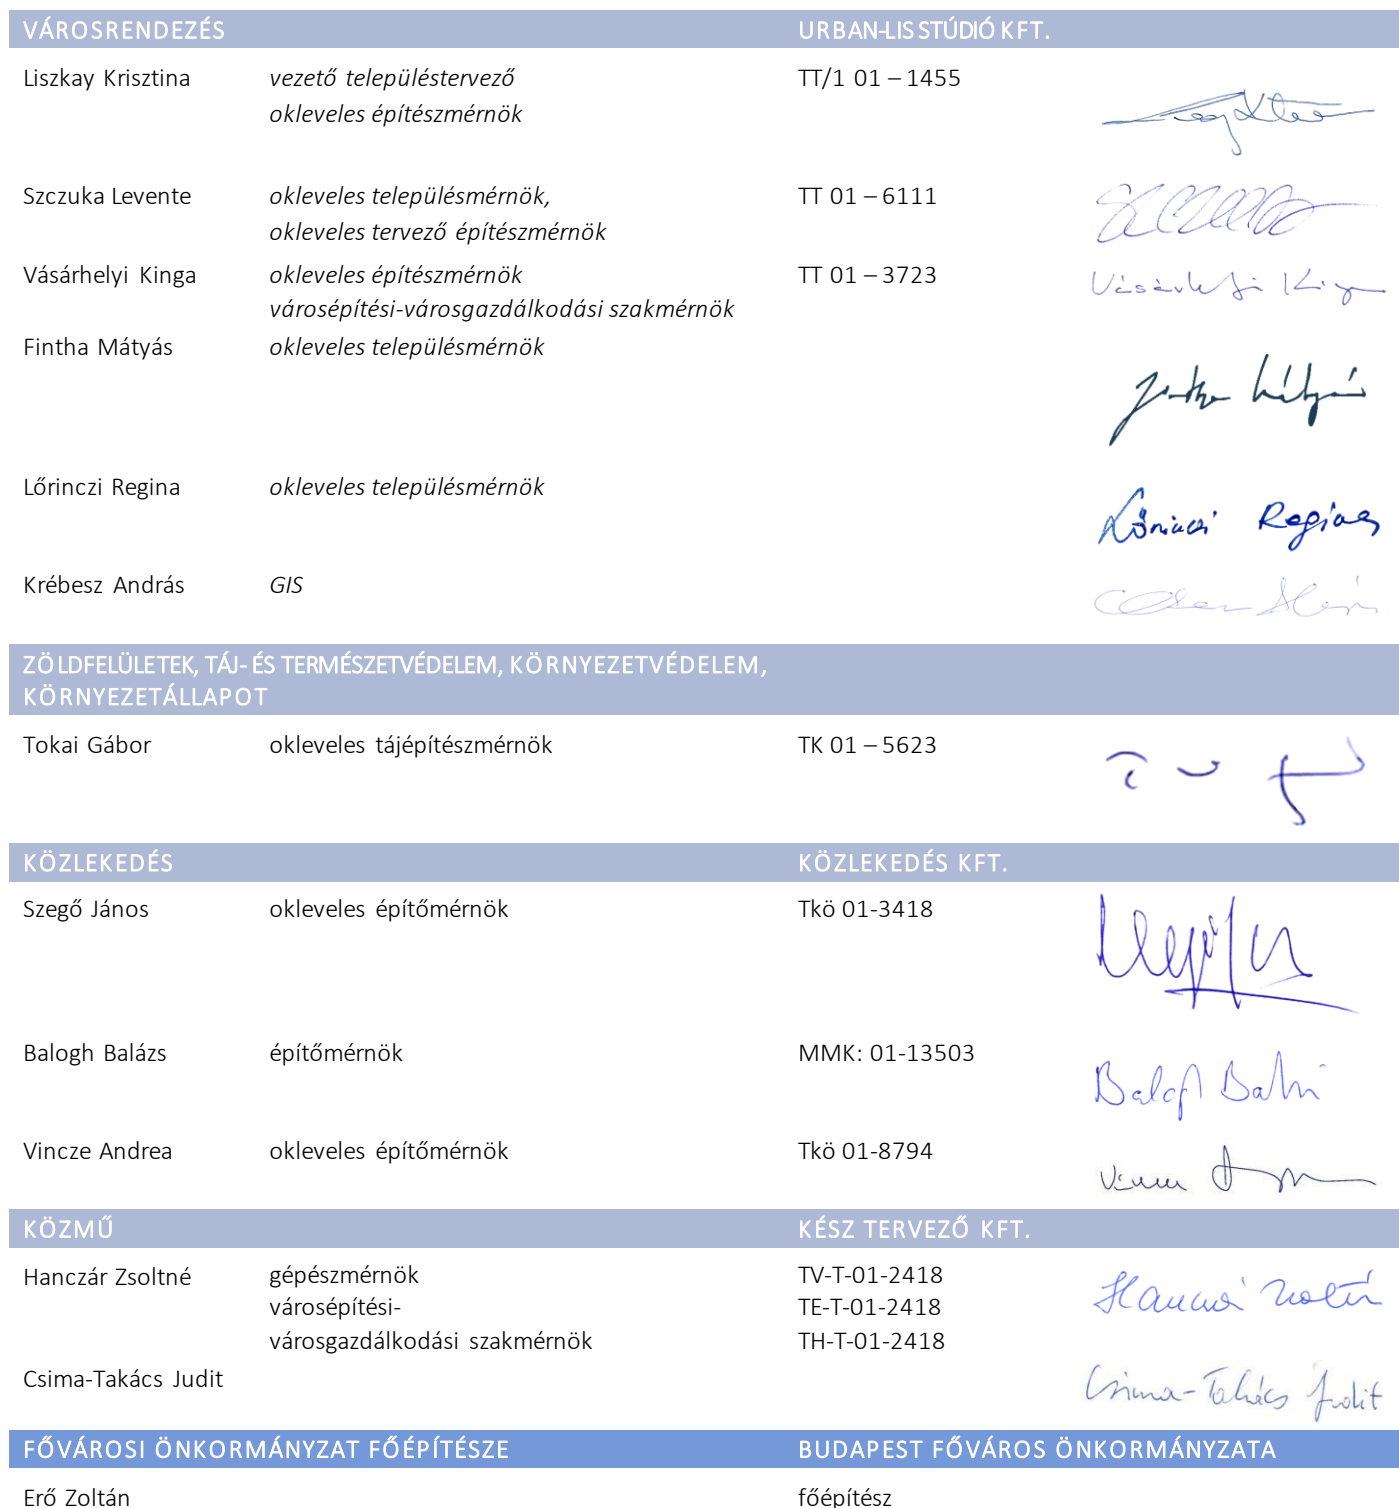 VÁROSRENDEZÉS URBAN-LIS STÚDIÓ KFT.
Liszkay Krisztina vezető településtervező TT/1 01 – 1455
okleveles építészmérnök
Szczuka Levente okleveles településmérnök, TT 01 – 6111
okleveles tervező építészmérnök
Vásárhelyi Kinga okleveles építészmérnök TT 01 – 3723 Vásárhelyi Kinga
városépítési-városgazdálkodási szakmérnök
Fintha Mátyás okleveles településmérnök
Fintha Mátyás
Lőrinczi Regina okleveles településmérnök
Lőrinczi Regina
Krébesz András GIS
ZÖLDFELÜLETEK, TÁJ- ÉS TERMÉSZETVÉDELEM, KÖRNYEZETVÉDELEM,
KÖRNYEZETÁLLAPOT
Tokai Gábor okleveles tájépítészmérnök TK 01 – 5623
KÖZLEKEDÉS KÖZLEKEDÉS KFT.
Szegő János okleveles építőmérnök Tkö 01-3418
Balogh Balázs építőmérnök MMK: 01-13503
Balogh Balázs
Vincze Andrea okleveles építőmérnök Tkö 01-8794
KÖZMŰ KÉSZ TERVEZŐ KFT.
Hanczár Zsoltné gépészmérnök TV-T-01-2418
városépítési- TE-T-01-2418
városgazdálkodási szakmérnök TH-T-01-2418
Csima-Takács Judit Csima-Takács Judit
FŐVÁROSI ÖNKORMÁNYZAT FŐÉPÍTÉSZE BUDAPEST FŐVÁROS ÖNKORMÁNYZATA
Erő Zoltán főépítész